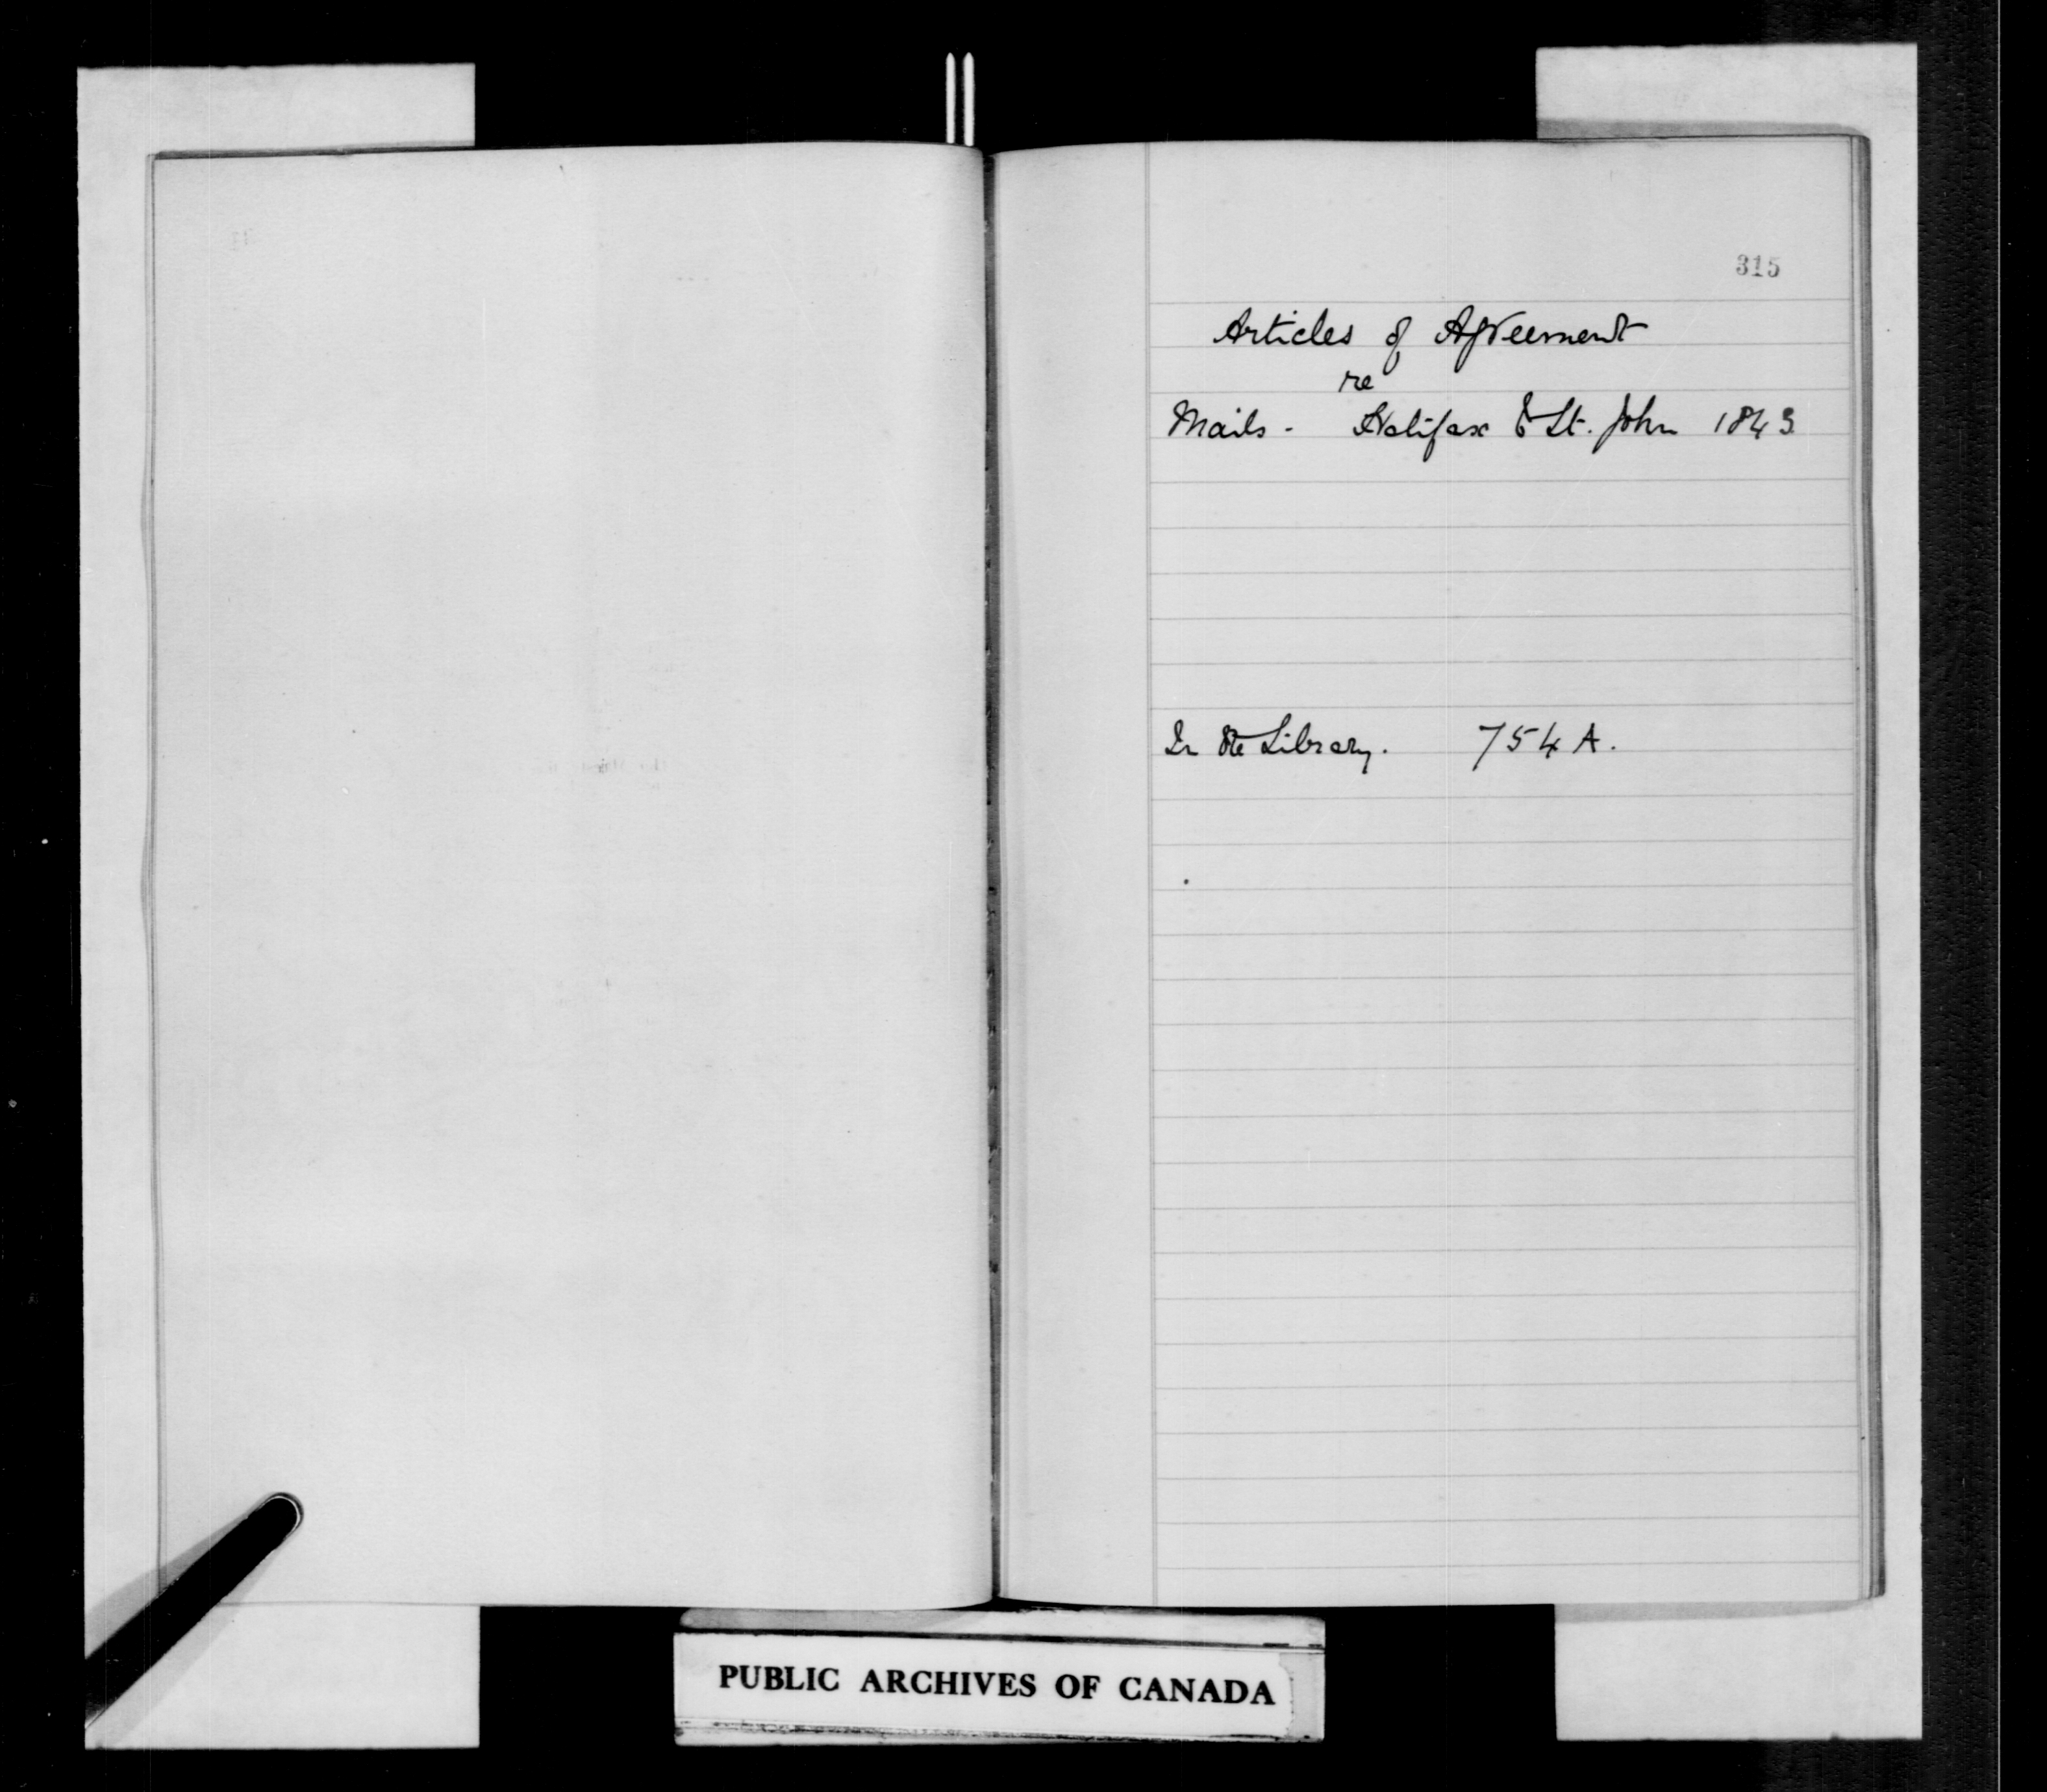 315
Articles of Agreement
re
Mails - Halifax & St. John 1843
In the Library. 754 A.
PUBLIC ARCHIVES OF CANADA